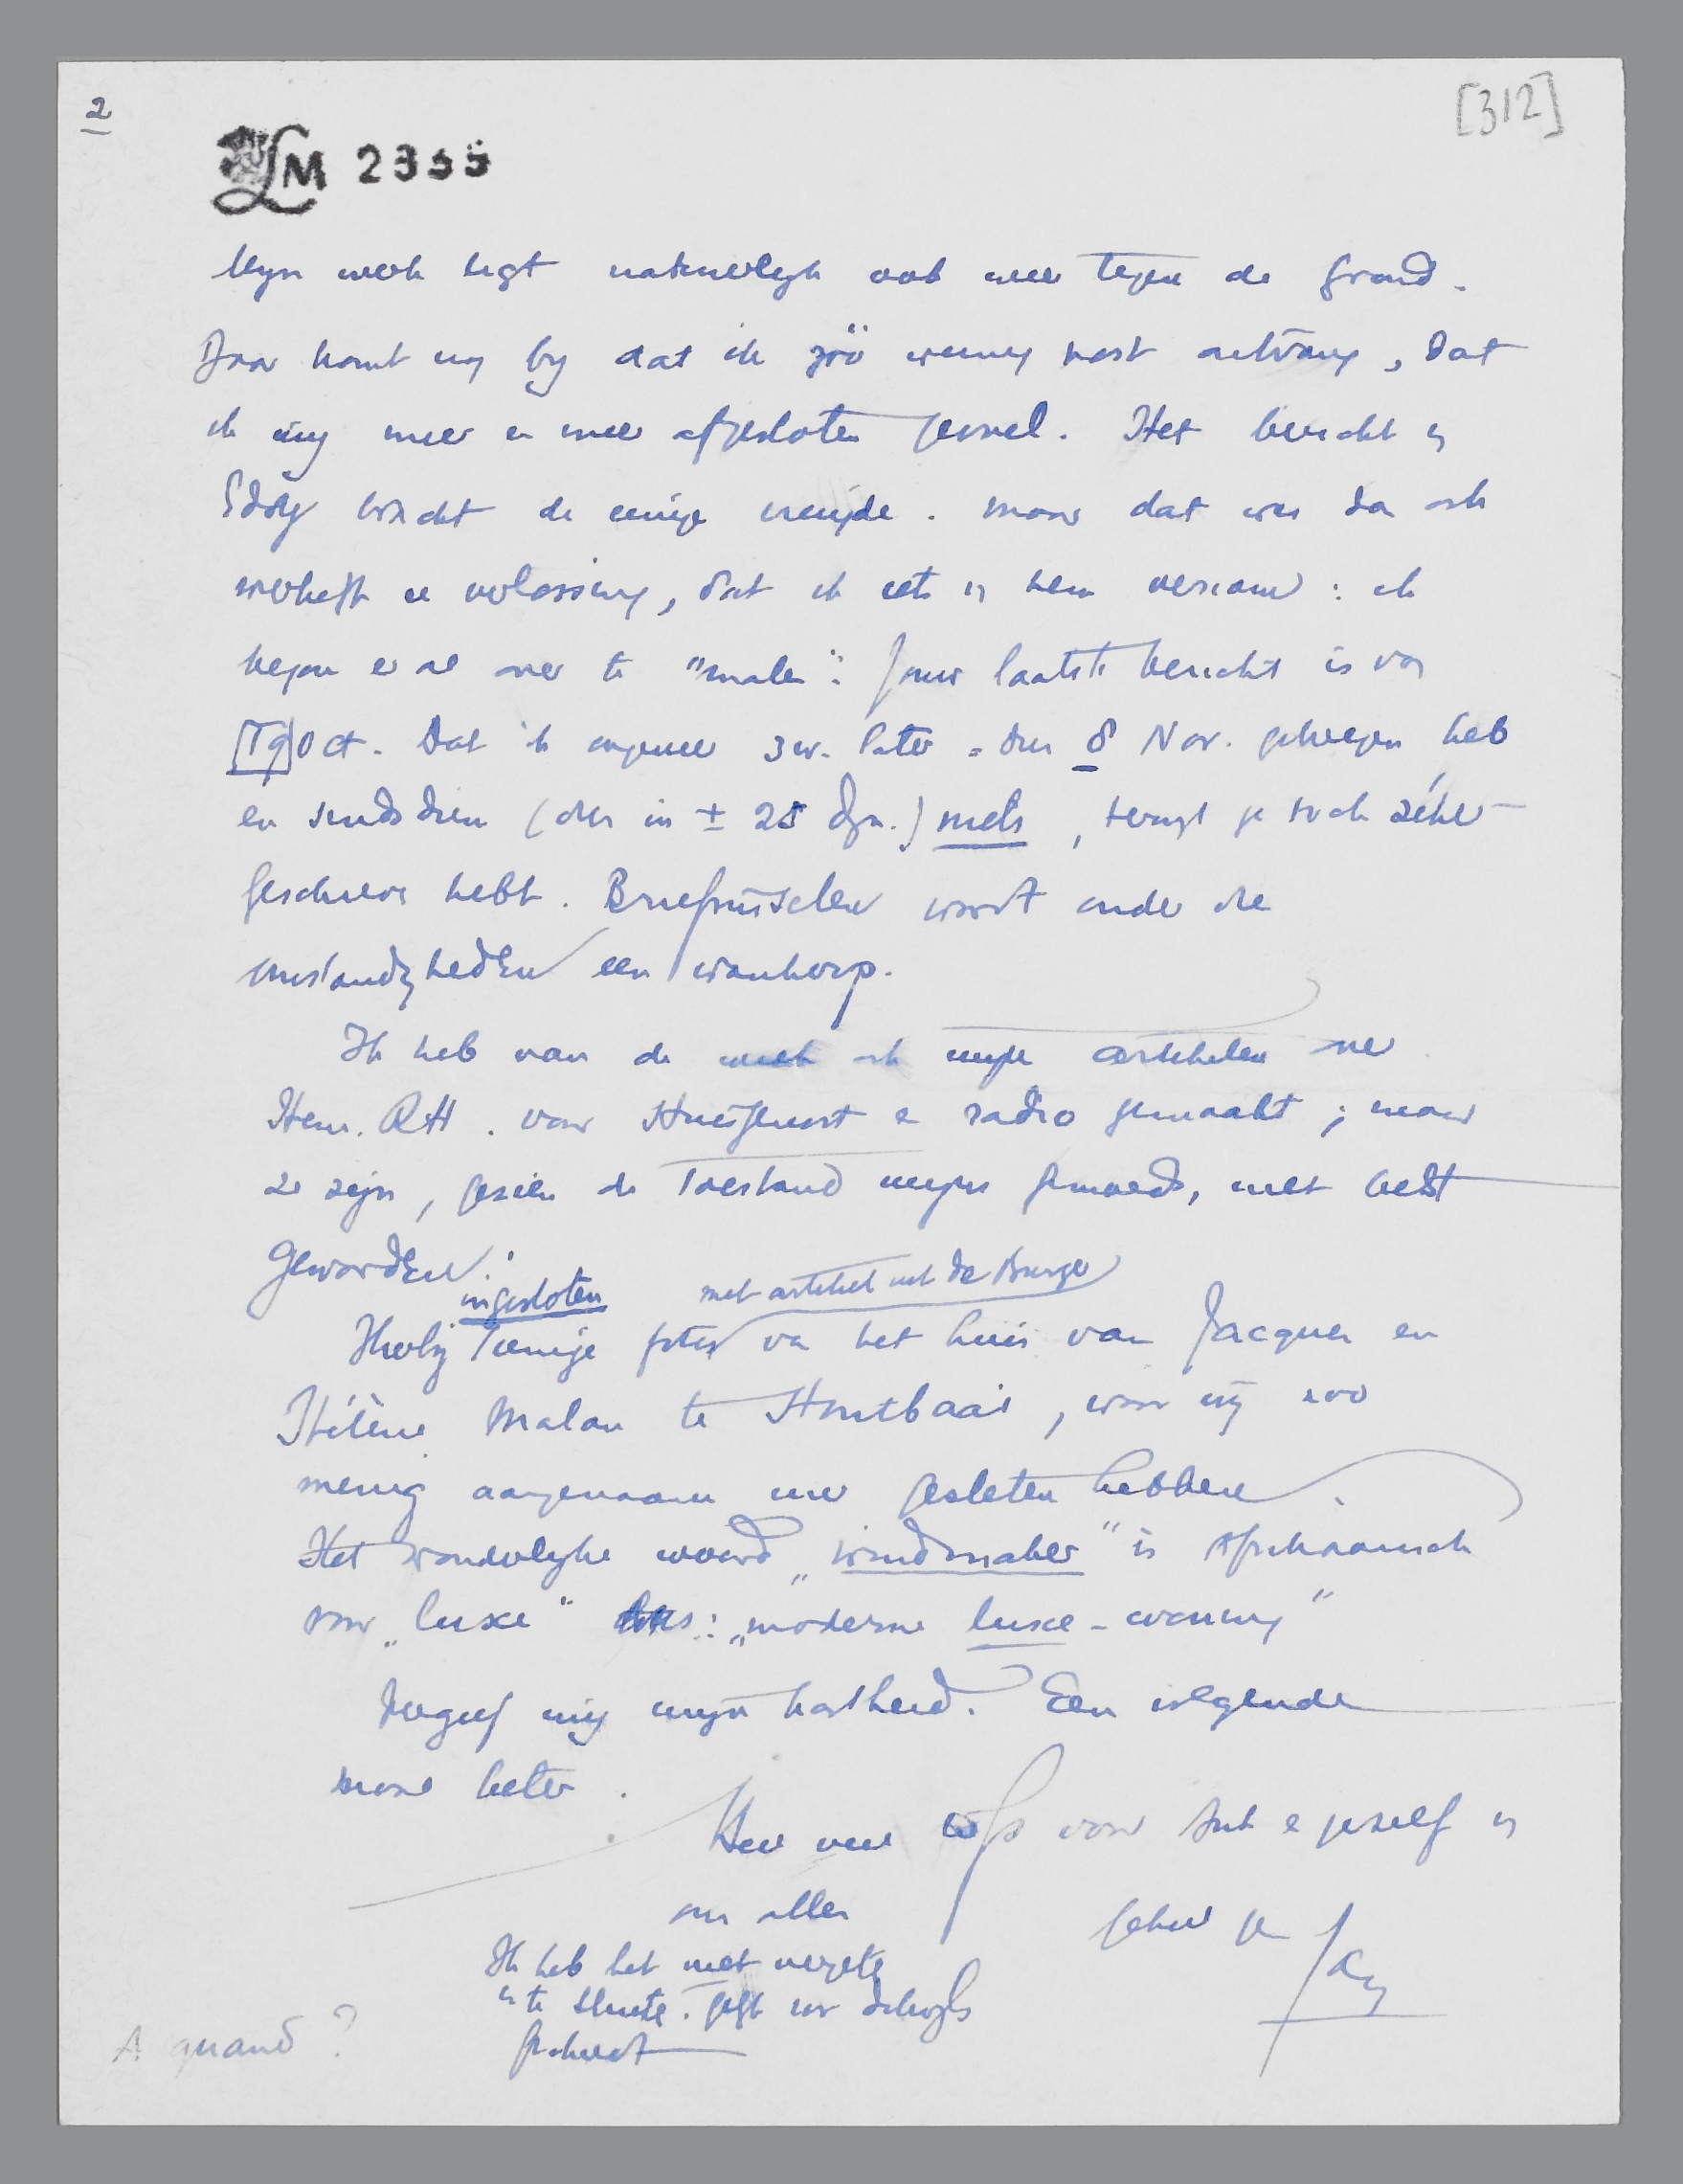 2
[312]
LM 2335
Mijn werk ligt natuurlijk ook weer tegen de grond.
Daar komt nog bij dat ik zóó weinig post ontvang, dat
ik mij meer en meer afgesloten gevoel. Het bericht v
Eddy bracht de eenige vreugde. maar dat was dan ook
werkelijk een verlossing, dat ik iets v hem vernam: ik
begon er al over te "malen". Jouw laatste bericht is van
19 Oct. Dat ik ongeveer 3 w. later = dus 8 Nov. gekregen heb
en sindsdien (dus in ± 25 dgn.) niets, terwijl je toch zéker
geschreven hebt. Briefwisselen wordt onder die
omstandigheden een wanhoop.
Ik heb van de week ook eenige artikelen over
Hen. R.H. voor en radio gemaakt; maar
ze zijn, gezien de toestand mijns gemoeds, niet best
geworden.
ingesloten met artikel uit de Burger
Hierbij eenige foto's van het huis van Jacques en
Hélène Malan te Houtbaai, waar wij zoo
menig aangenaam uur gesleten hebben.
Het wonderlijke woord "windmaker" is Afrikaansch
voor "luxe" dus: "moderne luxe-woning"
Vergeef mij mijn kortheid. Een volgende
maal beter.
Heel veel voor Ant en jezelf v
ons allen
geheel je
Jan
Ik heb het niet vergeten
in te sluiten. gaat voor
A quand?